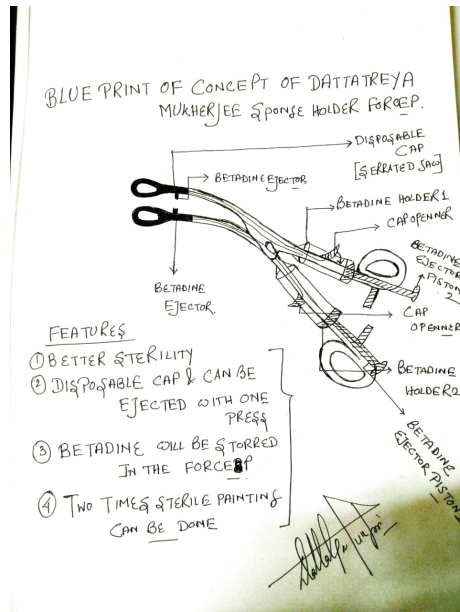 BLUE PRINT OF CONCEPT OF DATTATREYA
MUKHERJEE SPONGE HOLDER FORCEP.
DISPOSABLE
CAP
[SERRATED JAW]
BETADINE EJECTOR
BETADINE HOLDER 1
CAP OPENNER
BETADINE
EJECTOR
PISTON
2
BETADINE
EJECTOR
CAP
OPENNER
BETADINE
HOLDER 2
BETADINE
EJECTOR PISTON 1
FEATURES
① BETTER STERILITY
② DISPOSABLE CAP & CAN BE
EJECTED WITH ONE
PRESS
③ BETADINE WILL BE STORRED
IN THE FORCEP
④ TWO TIMES STERILE PAINTING
CAN BE DONE